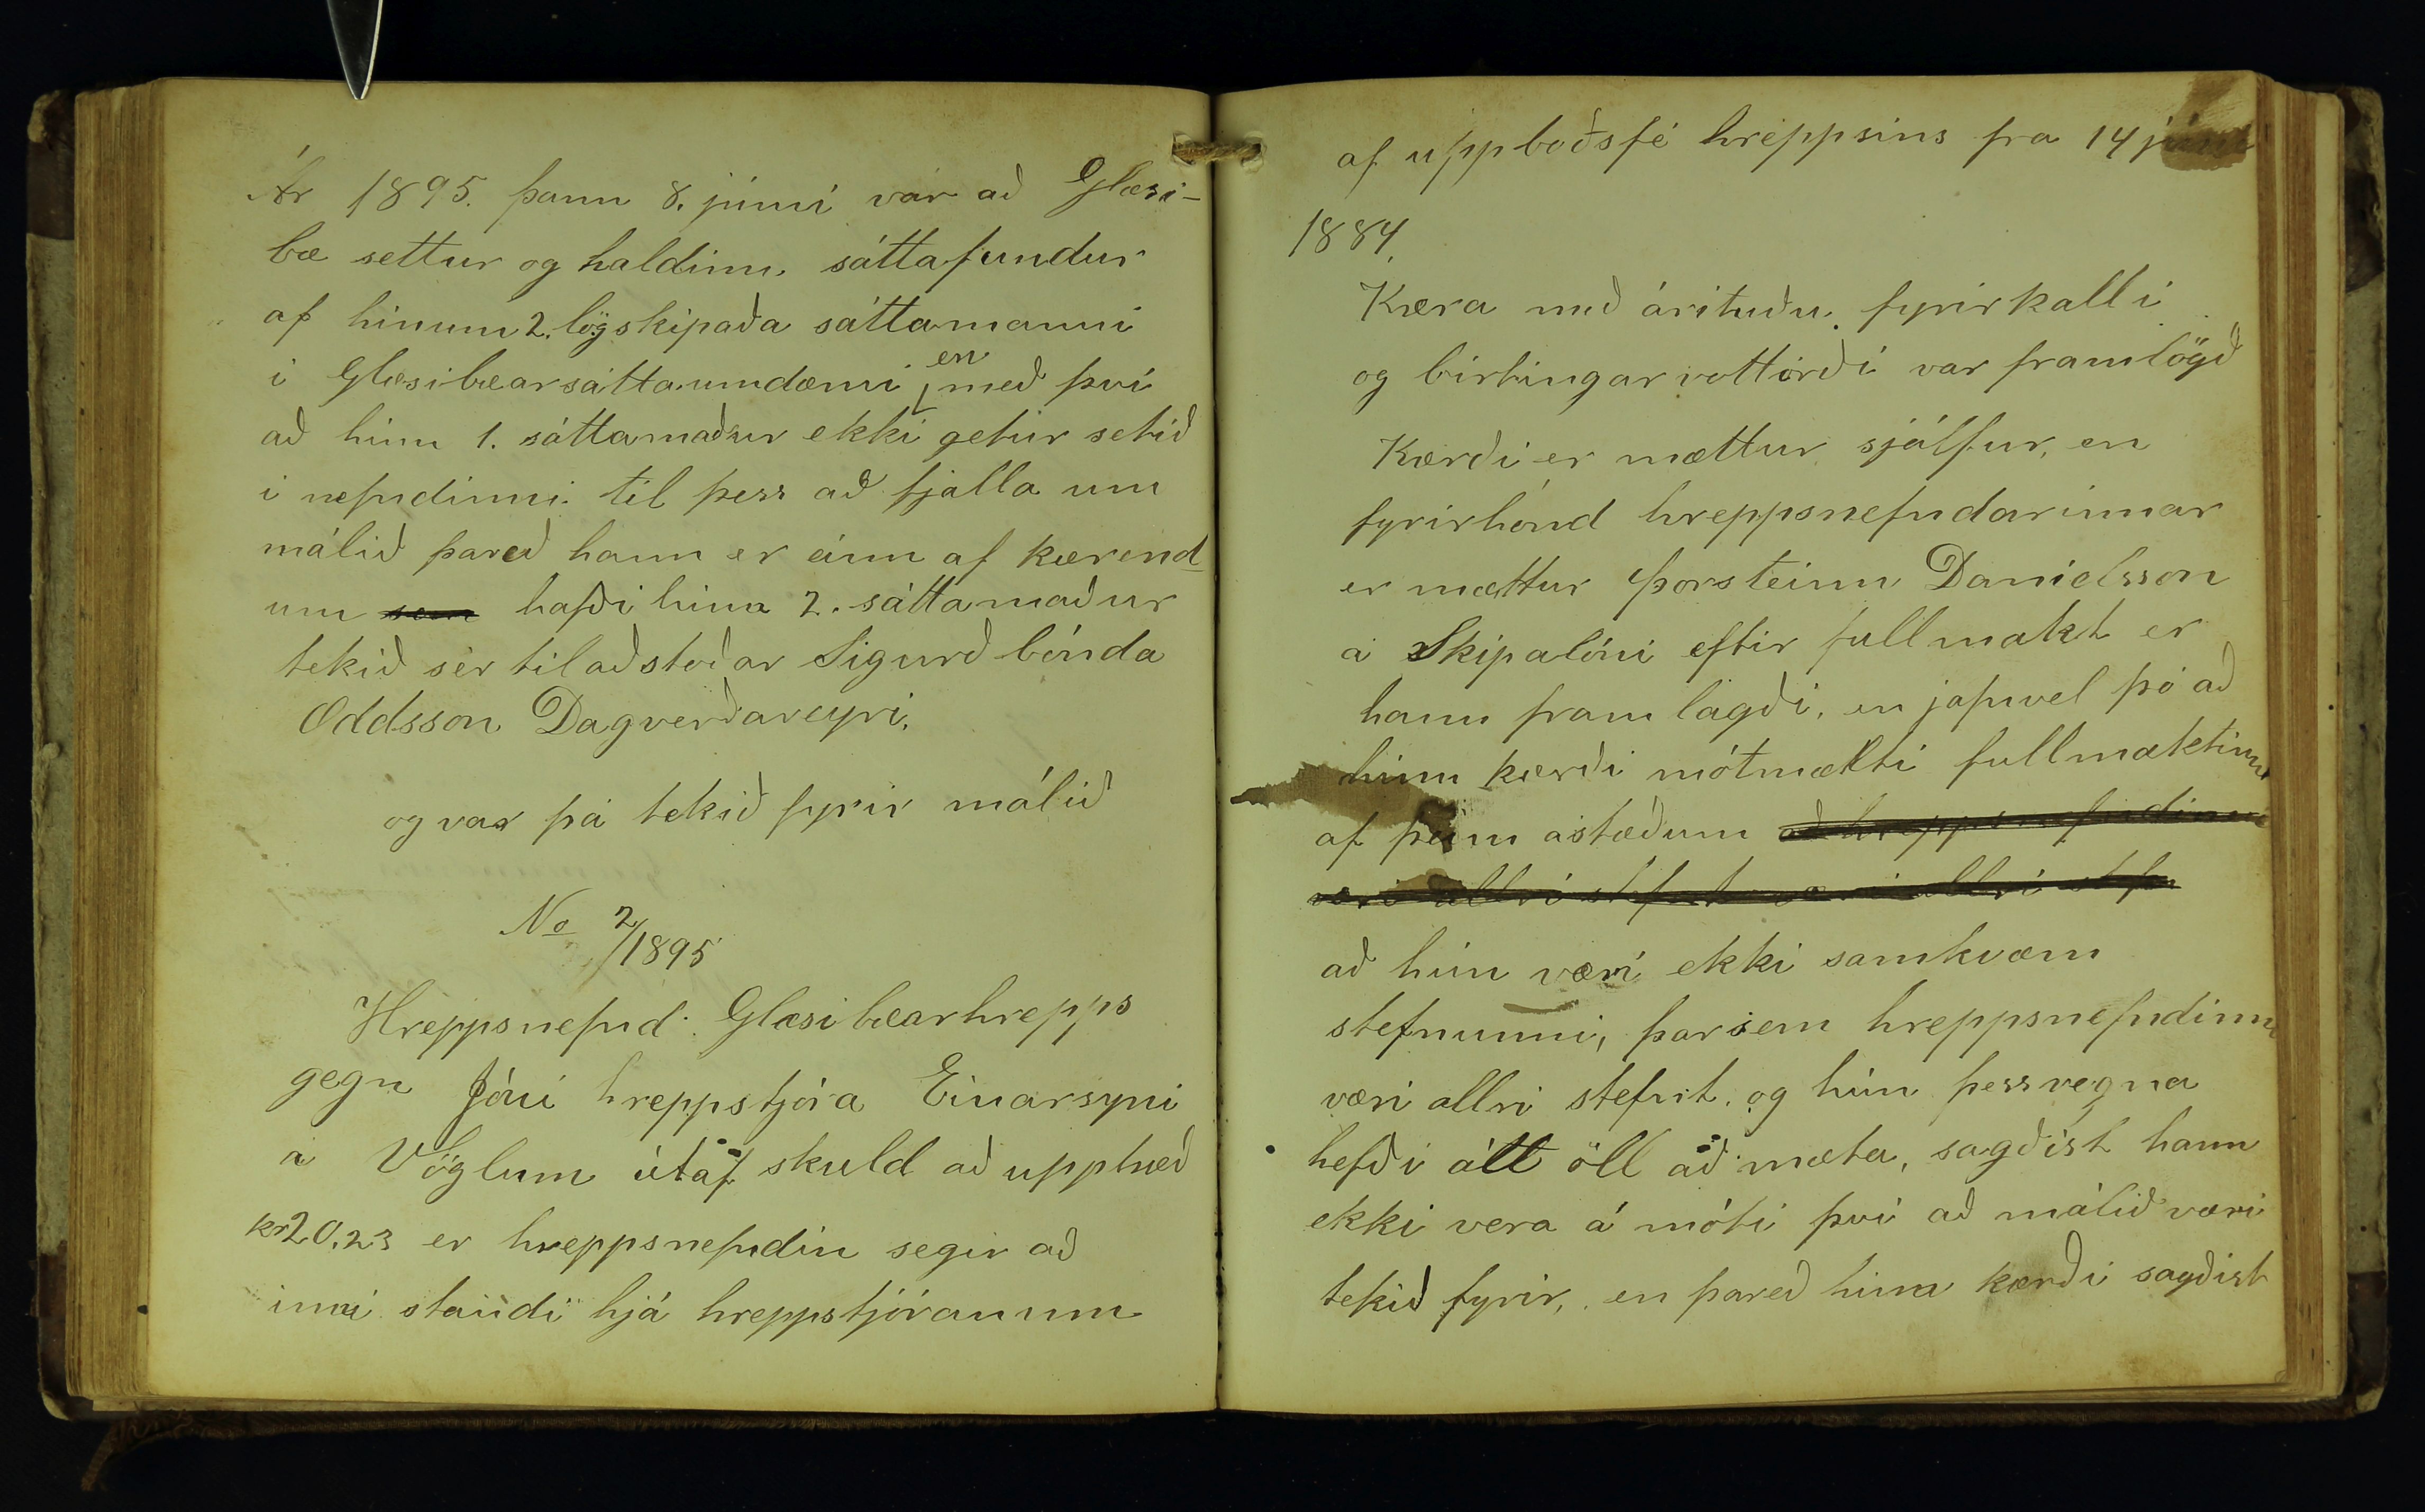 Ár 1895. þann 8. júnní var að Glæsi-
bæ settur og haldinn sáttafundur
af hinum 2. lögskipaða sáttamanni
í Glæsibæarsáttaumdæmi en með því
að hinn 1. sáttamaður ekki getur setið
i nefndinni til þess að fjalla um
málið þareð hann er einn af kærend-
um som hafði hinn 2. sáttamaður
tekið sér til aðstoðar Sigurð bónda
Oddsson Dagverðareyri.
og var þá tekið fyrir málið
No 2/1895
Hreppsnefnd Glæsibæarhrepps
gegn Jóni hreppstjóra Einarsyni
a Vöglum útaf skuld að upphæð
kr20,23 er hreppsnefndin segir að
inni standi hjá hreppstjóranum
af uppboðsfé hreppsins fra 14 júni
1884.
Kæra með árituðu fyrirkalli
og birtingarvottorði var framlögð
Kærði er mættur sjálfur, en
fyrirhönd hreppsnefndarinnar
er mættur Þorsteinn Daníelsson
á Skipalóni eftir fullmakt er
hann fram lagði, en jafnvel þó að
hinn kærði mótmælti fullmaktinni
af þeim ástæðum að hreppsnefndinni
væri allri stefnt væri allri stefn
að hún væri ekki samkvæm
stefnunni, þarsem hreppsnefndinni
væri allri stefnt og hún þessvegna
hefði átt öll að mæta, sagðist hann
ekki vera á móti því að málið væri
tekið fyrir, en þareð hinn kærði sagðist